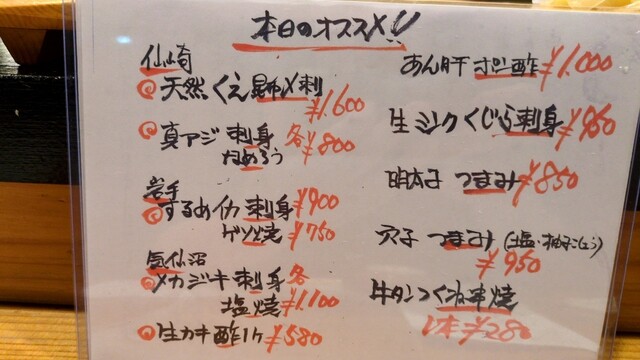 本日のオススメ
仙崎
天然くえ昆布〆刺
¥1.600
真アジ刺身 各
なめろう ¥800
岩手
するめイカ刺身 ¥900
ゲソ焼 ¥750
気仙沼
メカジキ刺身 各
塩焼 ¥1.100
生カキ酢1ケ ¥580
あん肝ポン酢 ¥1.000
生ミンククジラ刺身 ¥950
明太子つまみ ¥850
穴子つまみ(塩・柚子こしょう)
¥950
牛タンつくね串焼
1本 ¥280